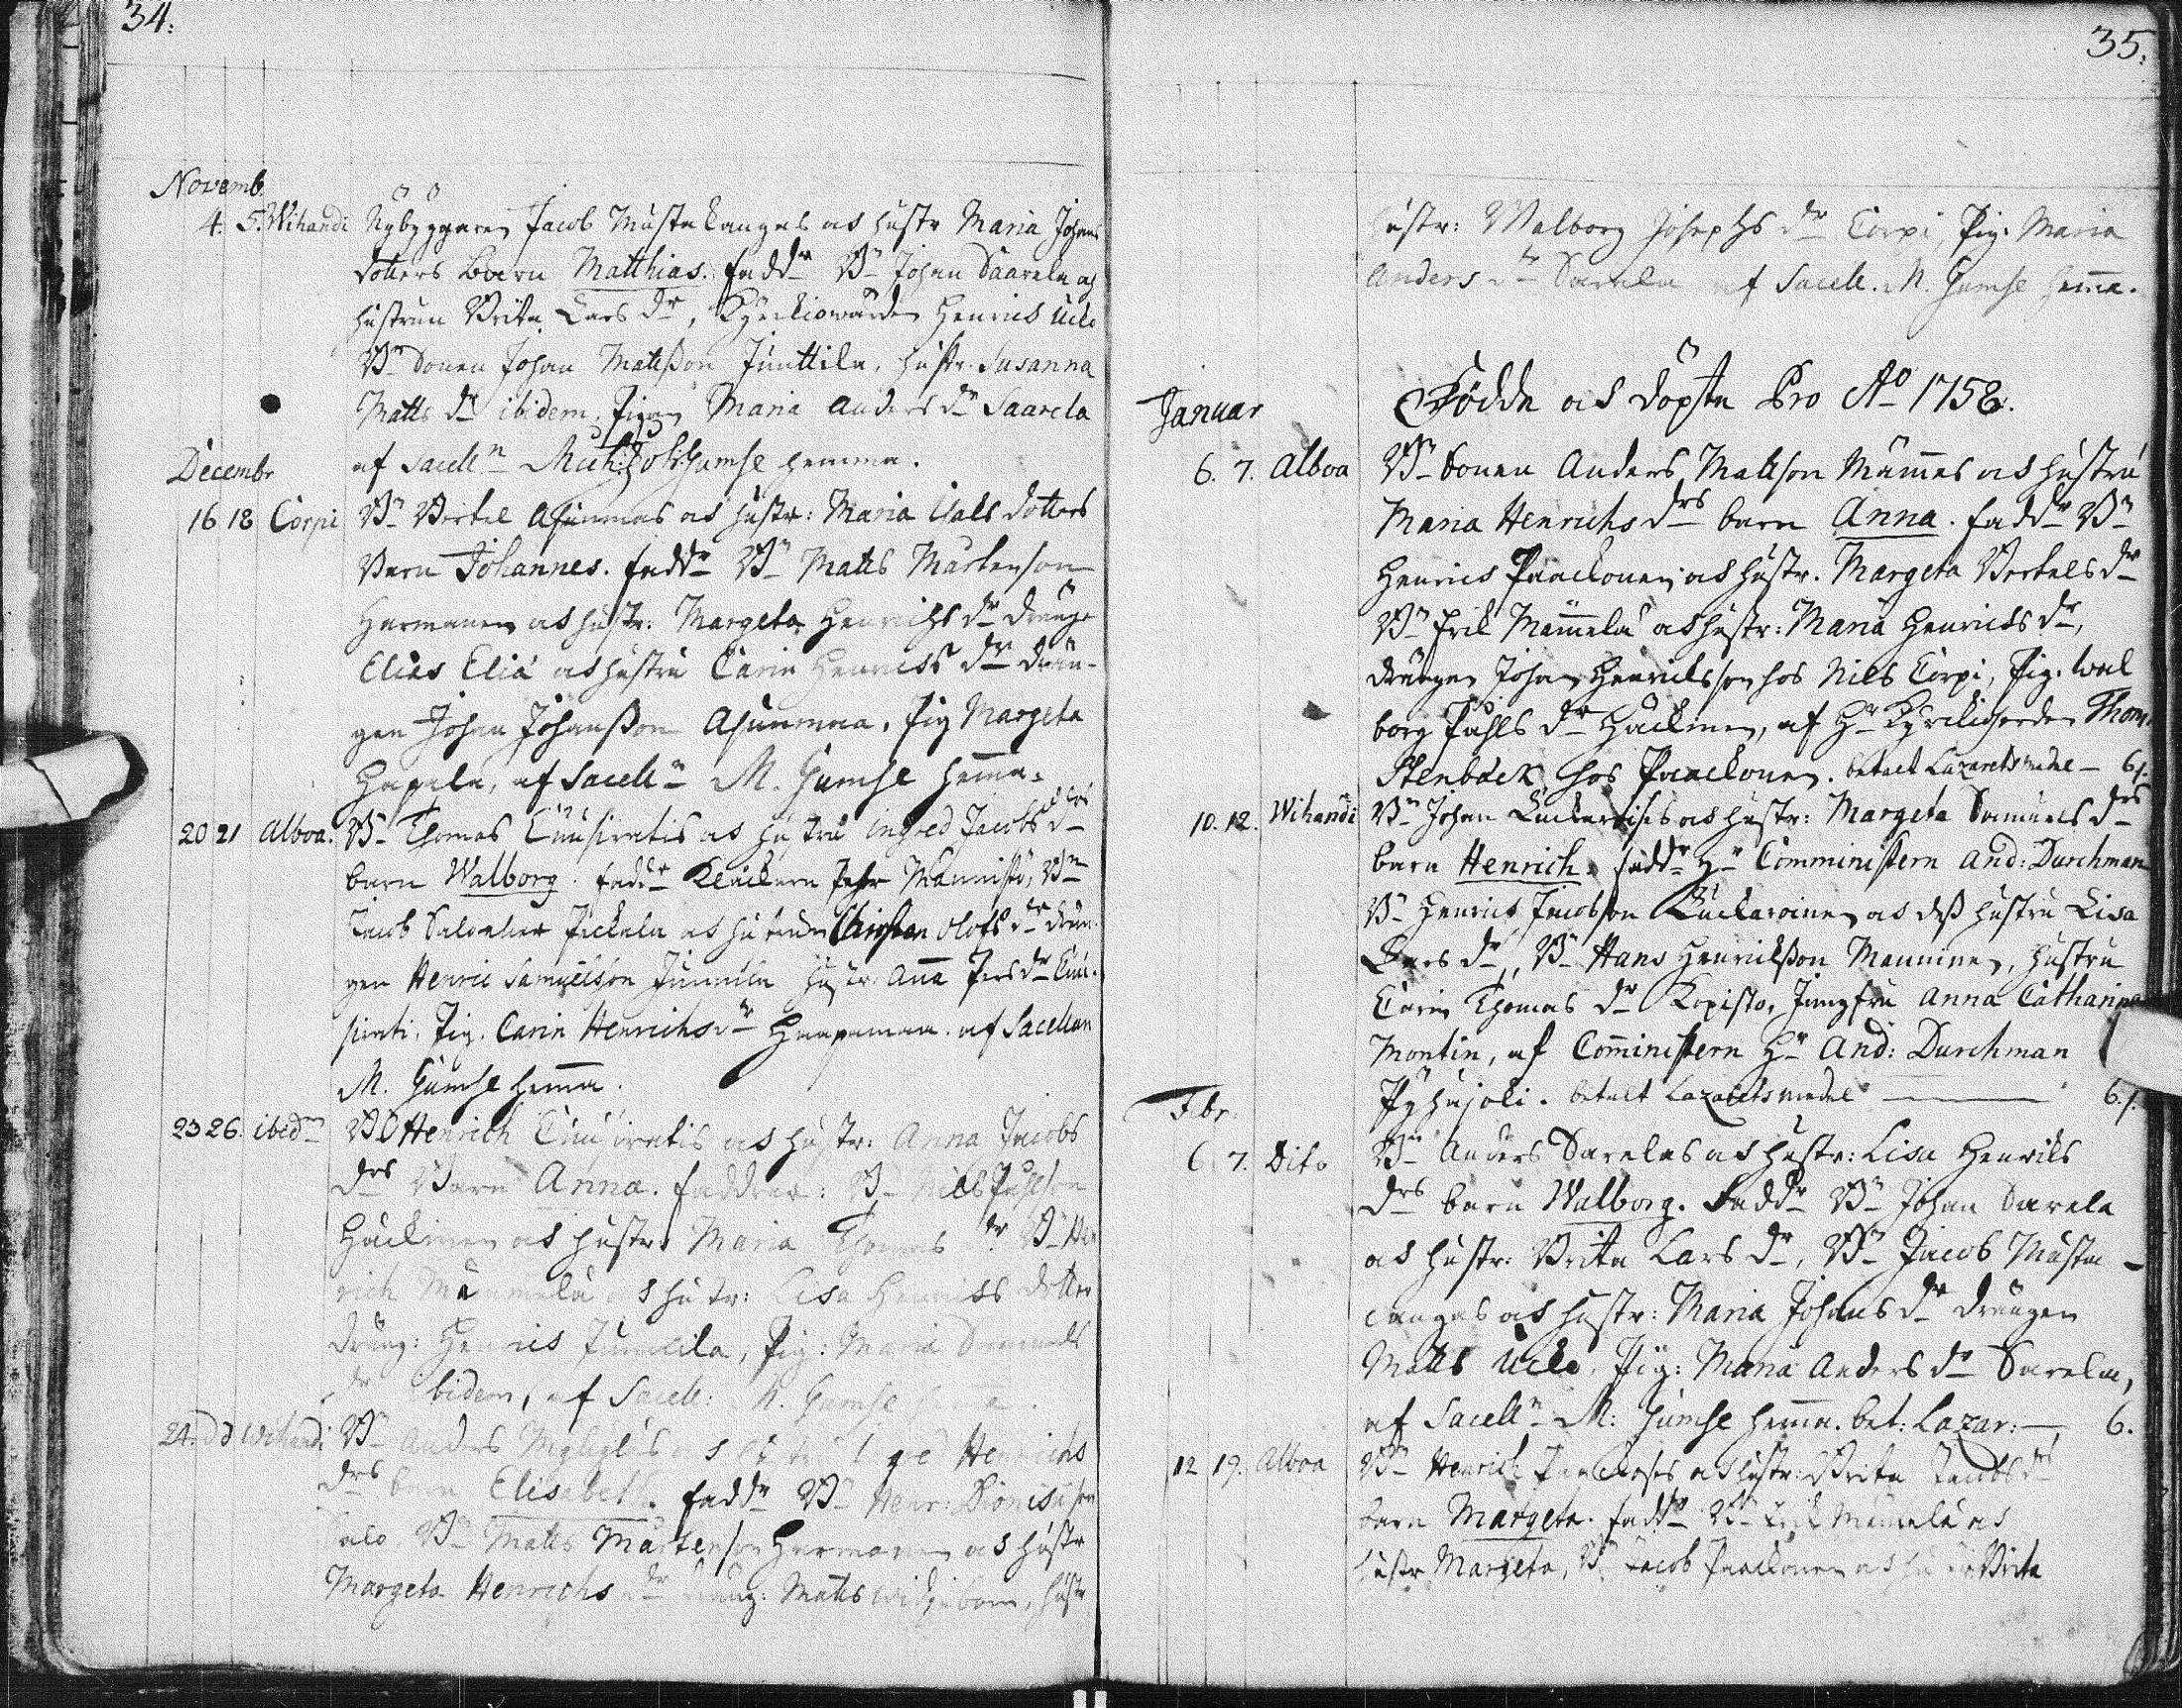 34.
Novemb.
4. 5. Wihandi Nybyggaren Jacob Mustakangas os hustr Maria Johans
dotters Barn Matthias. fadd:r B:n Johan Saarela os
hustrun Brita Lars d:r, Kyrkiowärden Henrics Ucko
B:n Sonen Johan Matsson Junttila, hustr. Susanna
Matts d:r ibidem, Pigan Maria Anders d:r Saarela
af Sacell:n Mich: Joh: Gumse hemma.
Decembr
16 18 Corpi B:n Bertel Asunmas os hustr: Maria Isaks dotters
Barn Johannes. fadd:r B:n Matts Mårtenson
Hermanen os hustr: Margeta Henrichs d:r dräng
Elias Eliä os hustru Carin Henrics d:r drän-
gen Johan Johansson Asunmaa, Pig Margeta
Hapala, af Sacell:n M. Gumse hem̄a.
20 21 Alboa. B:n Thomas Cuusiratis os hustru Ingred Jacobs d:rs
barn Walborg. fadd:r Klåckarn Männistö, B:n
Jacob Pickala os hustrun Christan Olofs d:r drän-
gen Henric Samuelson Junnila hustr. Anna Pers d:r Cuu-
sirati, Pig. Carin Henrichs d:r Haapamaa. af Sacellan
M. Gumse hem̄a.
23 26. ibid:m B:n Henrich Cuusiratis os hustr: Anna Jacobs
d:rs Barn Anna. faddrar: B:n Nils Påhlson
Hackinen os hustr: Maria Thomas d:r B:n Hen
rich Mämmelä os hustr: Lisa Henrics dotter
dräng: Henrics Junnila, Pig: Maria Samuels
d:r ibidem, af Sacell: M. Gumse
24. dd Wihandi B:n Anders os hustru Henrichs
d:rs barn Elisabeth. fadd:r B:n Henr: Dionisiison
Salo. B:n Matts Mårtenson Hermanen os hustr
Margeta Henrichs d:r dräng: Matts, hustr
35.
hustr: Walborg Josephs d:r Corpi, Pig. Maria
Anders d:r Sarala af Sacell. M. Gumse hem̄a.
Födde os döpte Pro A:o 1758.
Januar
6. 7. Alboa B:n Sonen Anders Mattson Mämmes os hustru
Maria Henrichs d:rs barn Anna. fadd:r B:n
Henrics Paackonen os hustr. Margeta Bertels d:r
B:n Erik Mämmelä os hustr: Maria Henricks d:r,
drängen Johan Henricksson hos Nils Corpi, Pig. Wal
borg Påhls d:r Hackinen, af H:r Kyrkioherden Thom.
Stenbäck hos Paackonen. betalt Lazarets medel — 6/.
10. 12. Wihandi B:n Johan os hustr: Margeta Samuels d:rs
barn Henrich. fadd:r H:r Comministern And: Durchman
B:n Henrics Jacobson Luckaroinen os dess hustru Lisa
Lars d:r, B:n Hans Henricksson Manninen, hustru
Carin Thomas d:r Kopisto, Jungfru Anna Catharina
Montin, af Com̄inistern H:r And: Durchman
Pyhäjoki. betalt Lazarets medel — 6/.
Febr.
6. 7. Dito B:n Anders Sarelas os hustr: Lisa Henriks
d:rs barn Walborg. Fadd:r B:n Johan Sarela
os hustr: Brita Lars d:r, B:n Jacob Musta-
cangas os hustr: Maria Johans d:r drängen
Matts Ucko, Pig: Maria Anders d:r Sarela,
af Sacell:n M: Gumse hem̄a. bet: Lazar: — 6.
12 19. Alboa B:n Henrich Paackoses os hustr: Brita Jacobs d:rs
barn Margeta. fadd:r B:n Erik Mämmelä os
hustr Margeta, B:n Jacob Paackonen os hustr Brita